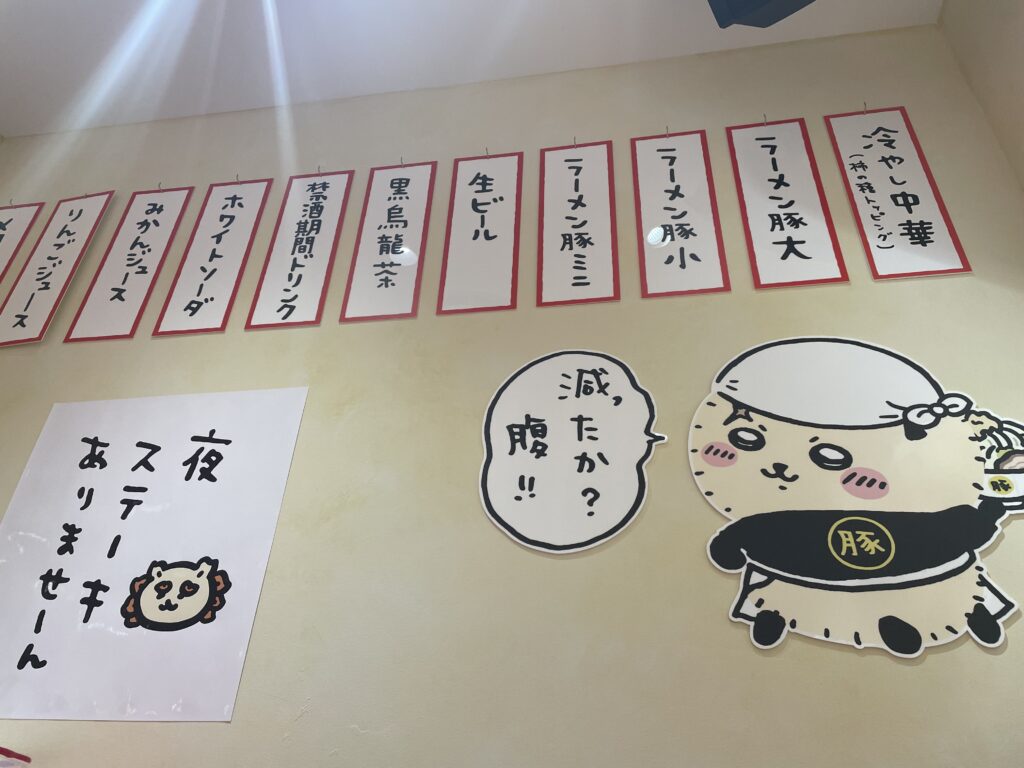 冷やし中華
(柿の種トッピング)
ラーメン豚大
ラーメン豚小
ラーメン豚ミニ
生ビール
黒烏龍茶
禁酒期間ドリンク
ホワイトソーダ
みかんジュース
りんごジュース
減ったか?
腹!!
豚
豚
夜
ステーキ
ありませーん